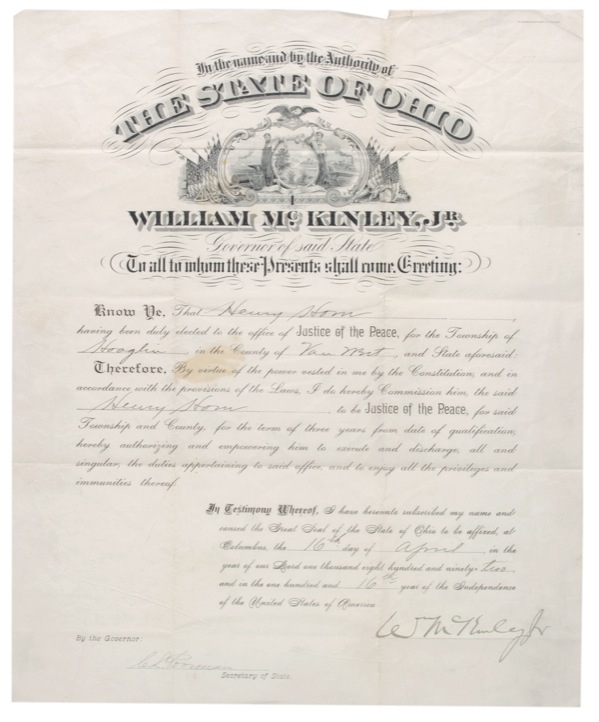 In the name and by the Authority of
THE STATE OF OHIO
WILLIAM McKINLEY, JR.
Governor of said State
To all to whom these Presents shall come, Greeting:
Know Ye, That Henry Horn,
having been duly elected to the office of Justice of the Peace, for the Township of
Hoaglin in the County of Van Wert, and State aforesaid:
Therefore, By virtue of the power vested in me by the Constitution, and in
accordance with the provisions of the Laws, I do hereby Commission him, the said
Henry Horn to be Justice of the Peace, for said
Township and County, for the term of three years from date of qualification,
hereby authorizing and empowering him to execute and discharge, all and
singular, the duties appertaining to said office, and to enjoy all the privileges and
immunities thereof.
In Testimony Whereof, I have hereunto subscribed my name and
caused the Great Seal of the State of Ohio to be affixed, at
Columbus, the 16th day of April in the
year of our Lord one thousand eight hundred and ninety-two
and in the one hundred and 16th year of the Independence
of the United States of America
W McKinley Jr
By the Governor:
Secretary of State.